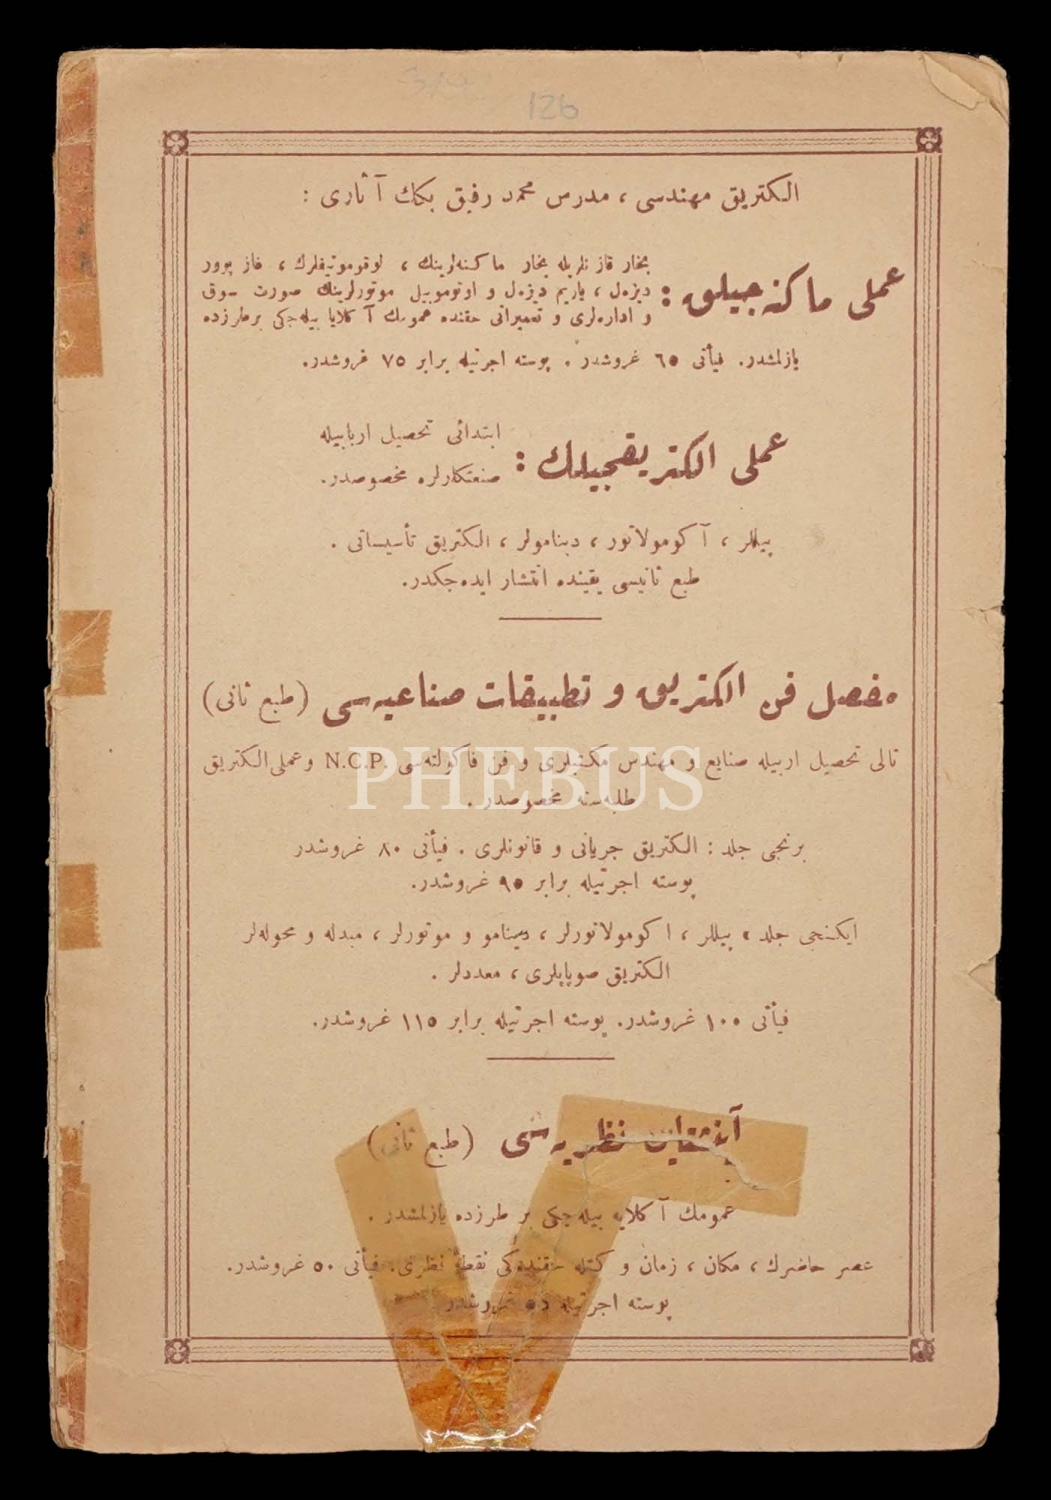 126
الكتریق مهندسی ، مدرس محمد رفیق بكك آثاری :
عملی ماكنه‌جیلق :
بخار قازنلریله بخار ماكنه‌لرینك ، لوقوموتیفلرك ، غاز پوور
دیزه‌ل ، یاریم دیزه‌ل و اوتوموبیل موتورلرینك صورت سوق
و اداره‌لری و تعمیراتی حقنده عمومك آكلایا بیله‌جكی برطرزده
یازلمشدر. فیأتی ٦٥ غروشدر . پوسته اجرتیله برابر ٧٥ غروشدر.
عملی الكتریقجیلك :
ابتدائی تحصیل اربابیله
صنعتكارلره مخصوصدر.
پیللر ، آكومولاتور ، دینامولر ، الكتریق تأسیساتی .
طبع ثانیسی یقینده انتشار ایده‌جكدر.
مفصل فن الكتریق و تطبیقات صناعیه‌سی (طبع ثانی)
تالی تحصیل اربیله صنایع و مهندس مكتبلری و فن فاكولته‌سی .N.C.P وعملی الكتریق
طلبه‌سنه مخصوصدر .
برنجی جلد : الكتریق جریانی و قانونلری . فیأتی ٨٠ غروشدر
پوسته اجرتیله برابر ٩٥ غروشدر.
ایكنجی جلد ، پیللر ، اكومولاتورلر ، دینامو و موتورلر ، مبدله و محوله‌لر
الكتریق صوپاپلری ، معددلر .
فیأتی ١٠٠ غروشدر. پوسته اجرتیله برابر ١١٥ غروشدر.
آینشتاین نظریه‌سی (طبع ثانی)
عمومك آكلایه بیله‌جكی بر طرزده یازلمشدر .
عصر حاضرك ، مكان ، زمان و كتله حقنده‌كی نقطهٔ نظری. فیأتی ٥٠ غروشدر.
پوسته اجرتیله غروشدر
PHEBUS